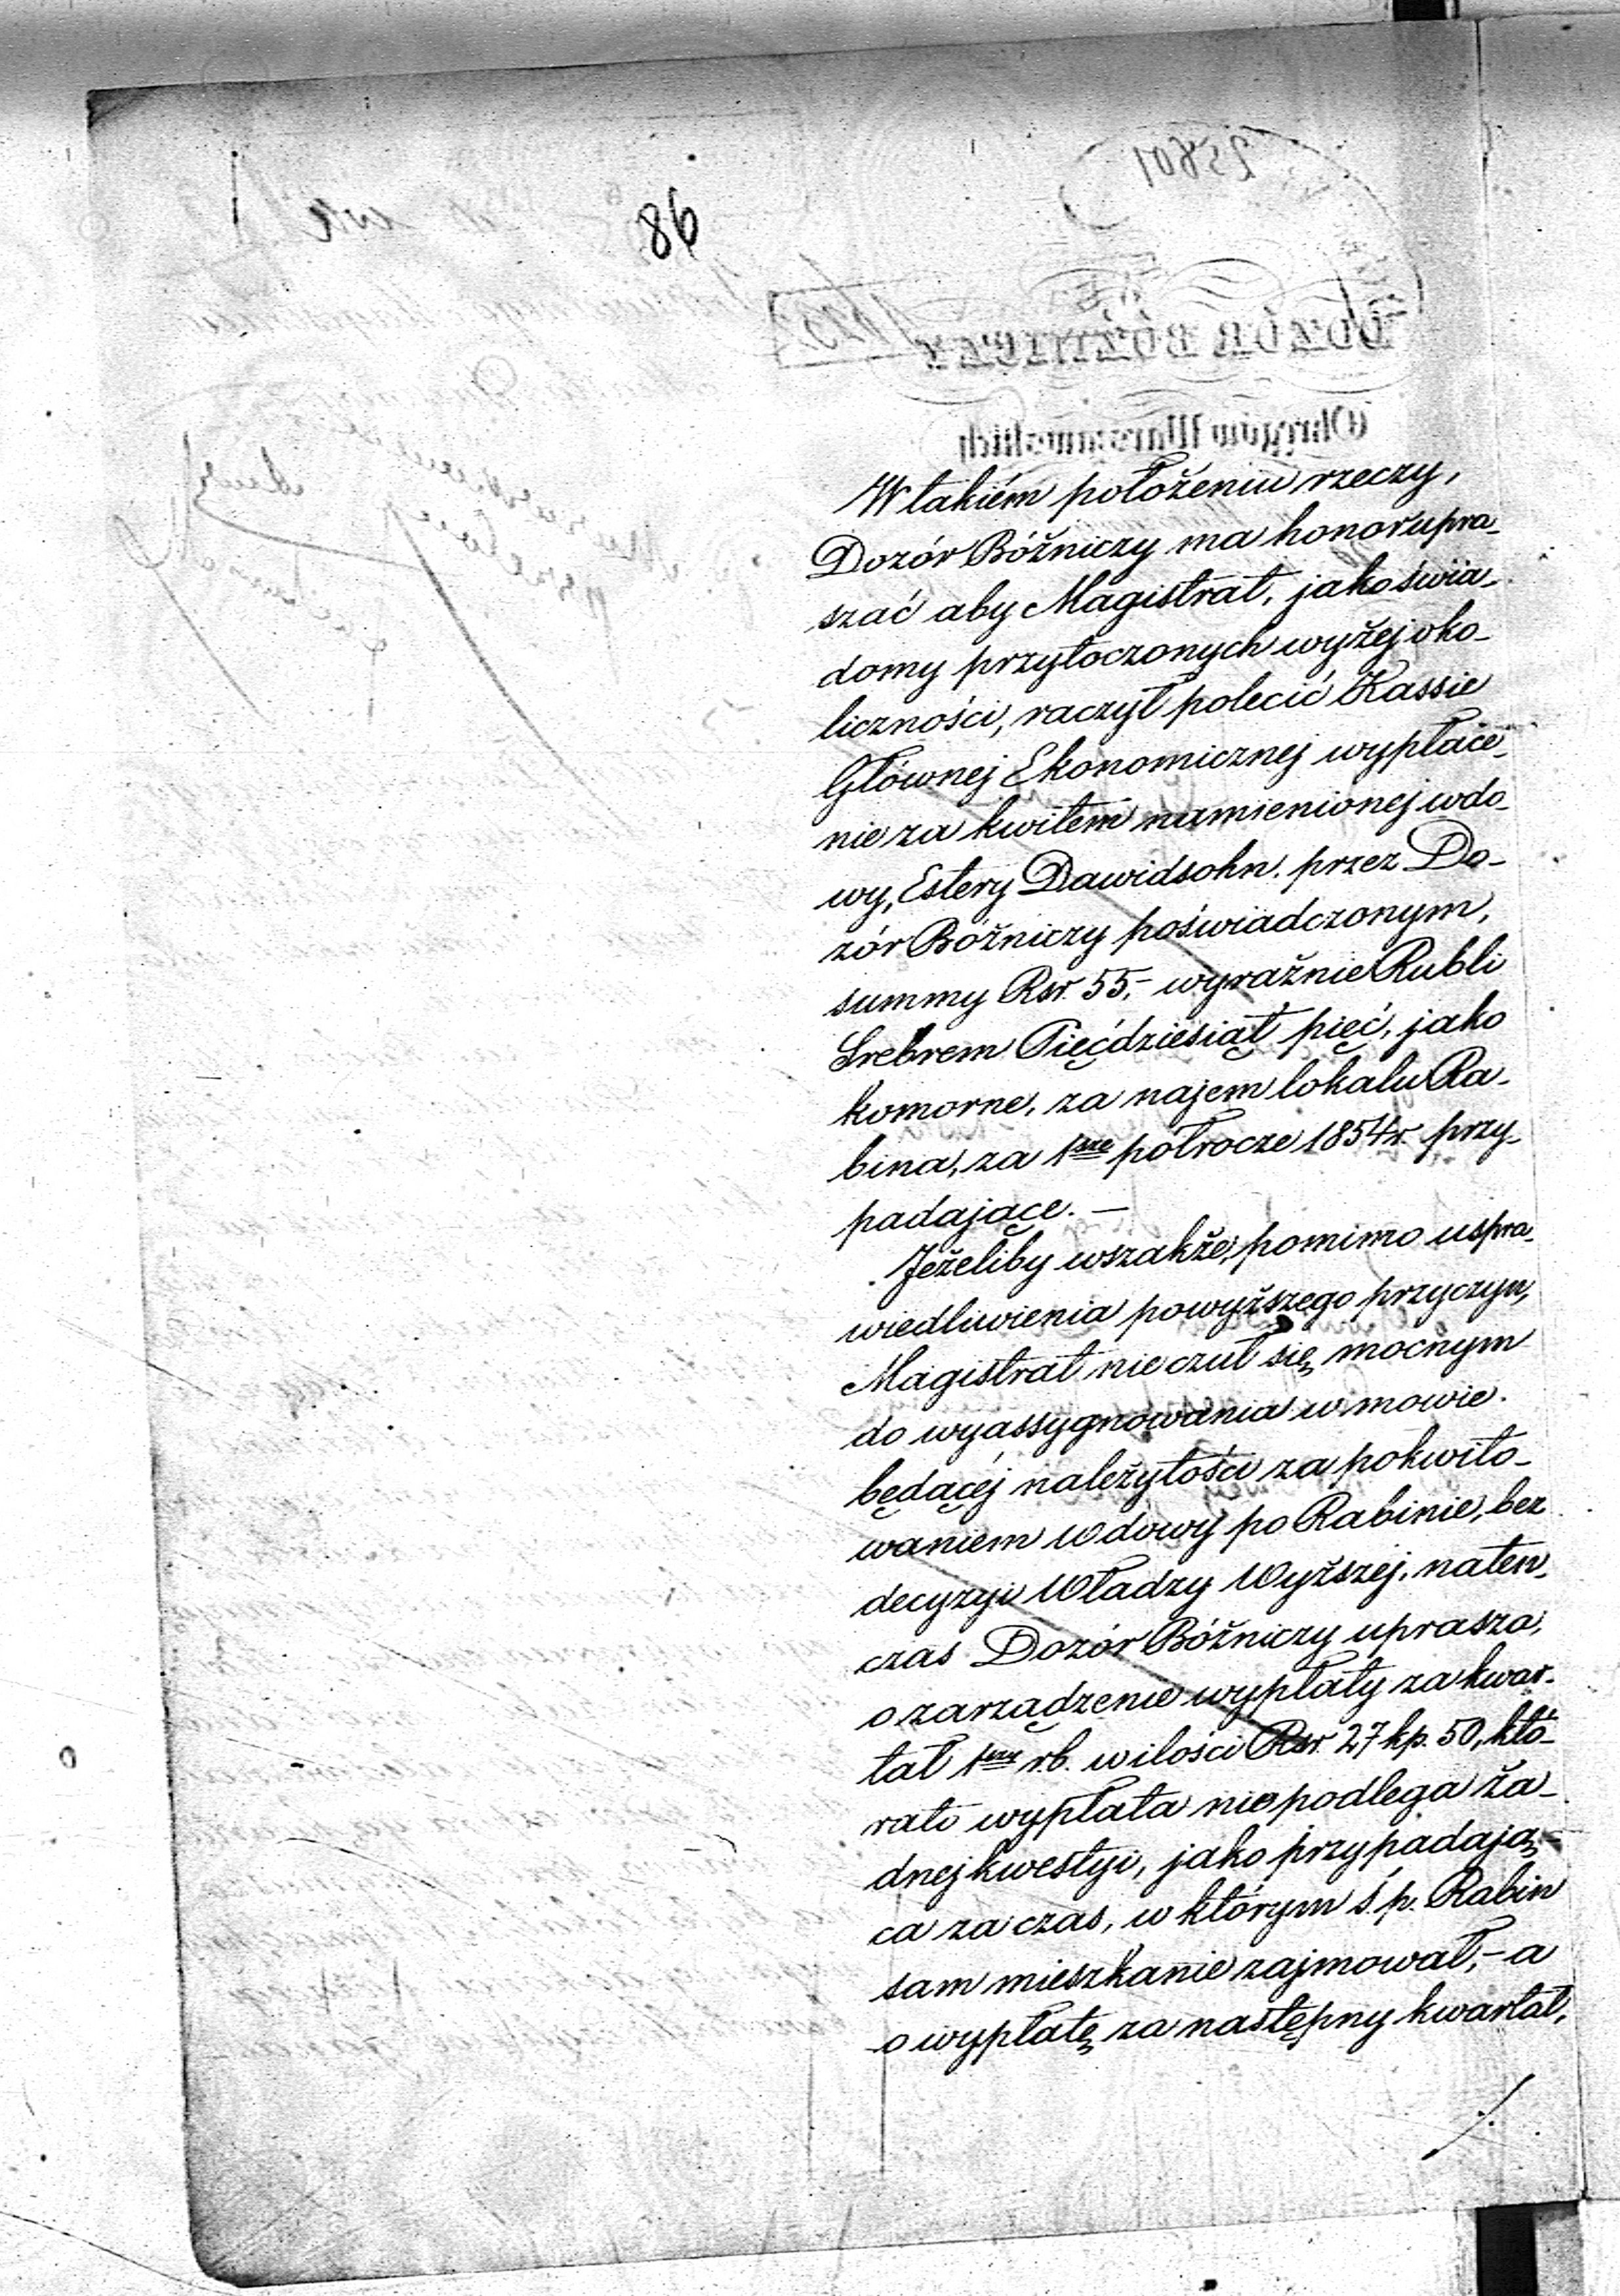 98
W takiém położeniu rzeczy,
Dozór Bóżniczy ma honor upra-
szać aby Magistrat, jako świa-
domy przytoczonych wyżej oko-
liczności, raczył polecić Kassie
Głównej Ekonomicznej wypłace-
nie za kwitem namienionej wdo-
wy, Estery Dawidsohn, przez Do-
zór Bóżniczy poświadczonym,
summy Rsr. 55,- wyraźnie Rubli
Srebrem Pięćdziesiąt pięć, jako
komorne, za najem lokalu Ra-
bina, za 1sze półrocze 1854 r. przy-
padające. —
Jeżeliby wszakże, pomimo uspra-
wiedliwienia powyższego przyczyn,
Magistrat nie czuł się mocnym
do wyassygnowania w mowie
będącéj należytości za pokwito-
waniem wdowy po Rabinie, bez
decyzyi Władzy Wyższéj, naten-
czas Dozór Bóżniczy uprasza,
o zarządzenie wypłaty za kwar-
tał 1szy r.b. w ilości Rsr. 27 kp. 50, któ-
rato wypłata nie podlega ża-
dnej kwestyi, jako przypadają-
ca za czas, w którym ś.p. Rabin
sam mieszkanie zajmował,- a
o wypłatę za następny kwartał,
./.